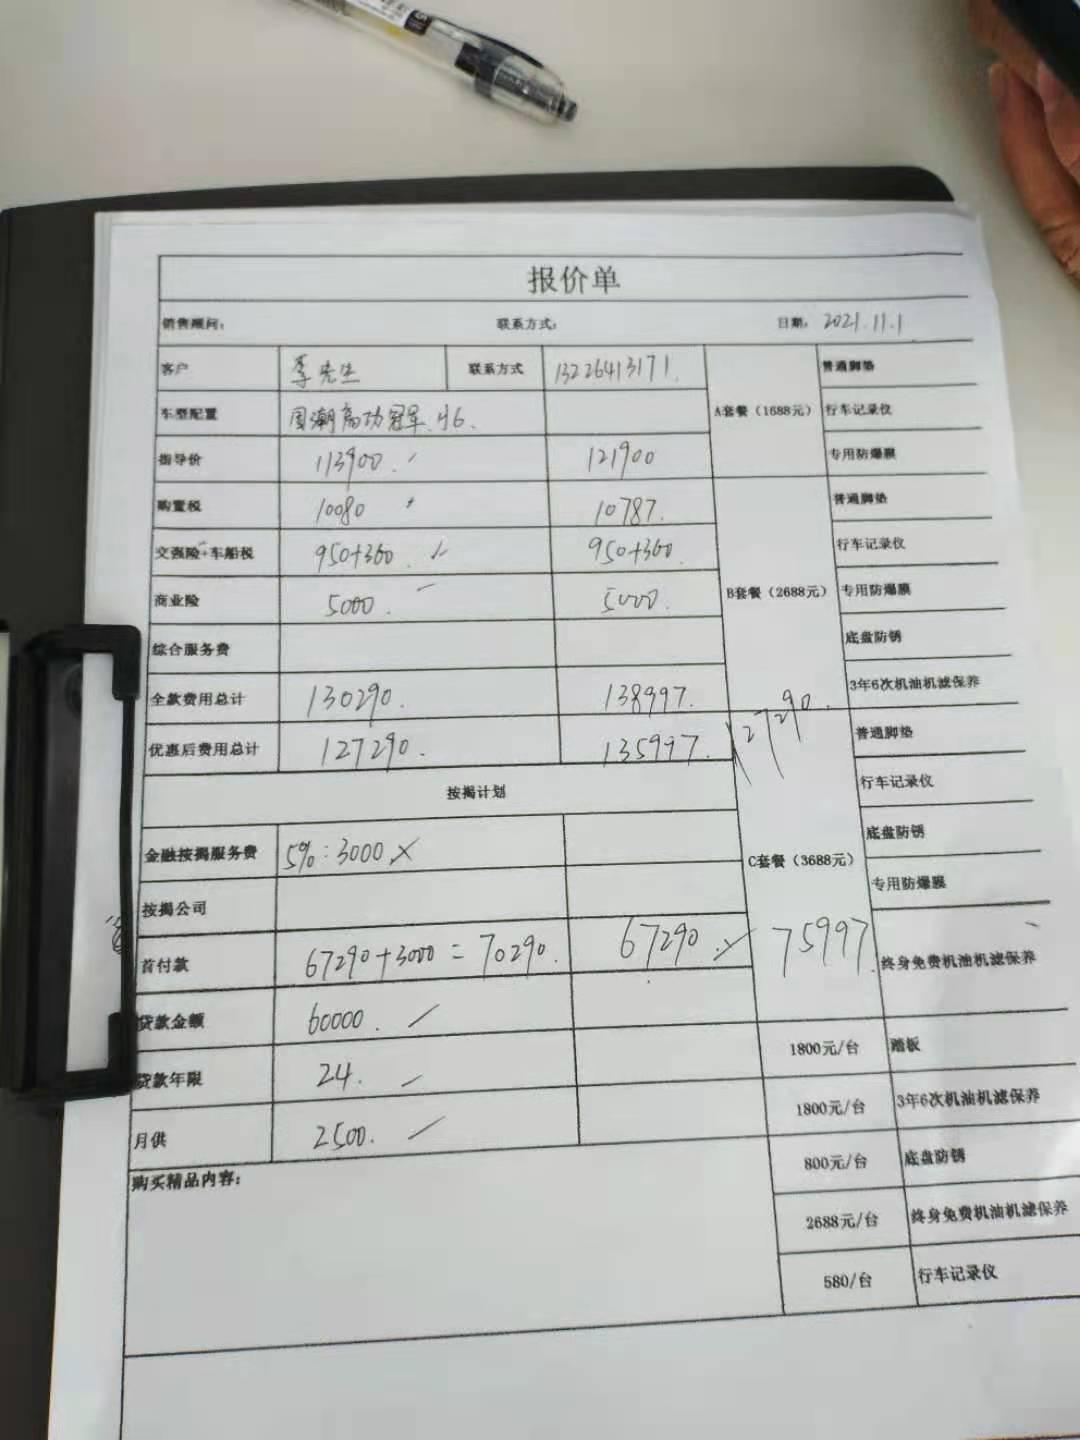 报价单
销售顾问: 联系方式: 日期: 2021.11.1
客户 李先生 联系方式 13226413171.
车型配置 国潮高功冠军.
指导价 113900. 121900
购置税 10080 10787.
交强险+车船税 950+360. 950+360.
商业险 5000. 5000.
综合服务费
全款费用总计 130290. 138997.
优惠后费用总计 127290. 135997. 127290.
按揭计划
金融按揭服务费 5%:3000
按揭公司
首付款 67290+3000=70290. 67290. 75997.
贷款金额 60000.
贷款年限 24.
月供 2500.
购买精品内容:
A套餐(1688元)
普通脚垫
行车记录仪
专用防爆膜
B套餐(2688元)
普通脚垫
行车记录仪
专用防爆膜
底盘防锈
3年6次机油机滤保养
C套餐(3688元)
普通脚垫
行车记录仪
底盘防锈
专用防爆膜
终身免费机油机滤保养
1800元/台 踏板
1800元/台 3年6次机油机滤保养
800元/台 底盘防锈
2688元/台 终身免费机油机滤保养
580/台 行车记录仪